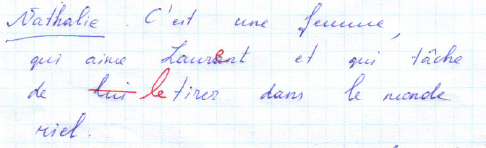 Nathalie. C'est une femme,
qui aime Laurent et qui tâche
de lui le tirer dans le monde
riel.